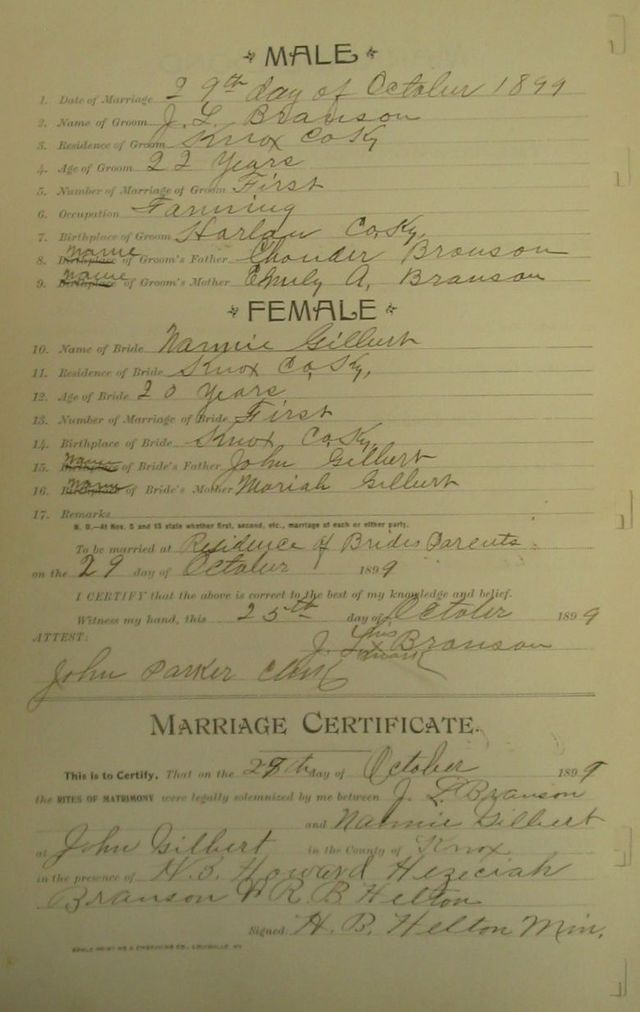 MALE
1. Date of Marriage 29th day of October 1899
2. Name of Groom J. L. Branson
3. Residence of Groom Knox Co Ky
4. Age of Groom 22 Years
5. Number of Marriage of Groom First
6. Occupation Farming
7. Birthplace of Groom Harlan Co. Ky.
8. Birthplace Name of Groom's Father Branson
9. Birthplace Name of Groom's Mother Emily A. Branson
FEMALE
10. Name of Bride Nannie Gilbert
11. Residence of Bride Knox Co. Ky.
12. Age of Bride 20 years
13. Number of Marriage of Bride First
14. Birthplace of Bride Knox Co. Ky.
15. Birthplace Name of Bride's Father John Gilbert
16. Birthplace Name of Bride's Mother Mariah Gilbert
17. Remarks
N. B.—At Nos. 5 and 13 state whether first, second, etc., marriage of each or either party.
To be married at Residence of Brides Parents
on the 29 day of October 1899
I CERTIFY that the above is correct to the best of my knowledge and belief.
Witness my hand, this 25th day of October 1899
ATTEST: J. L. his x mark Branson
John Parker Clerk
MARRIAGE CERTIFICATE.
This is to Certify, That on the day of October 1899
the RITES OF MATRIMONY were legally solemnized by me between J. L. Branson
and Nannie Gilbert
at John Gilbert in the County of Knox
in the presence of Howard Hezeciah
Branson R B Helton
Signed. H. B. Helton Min.